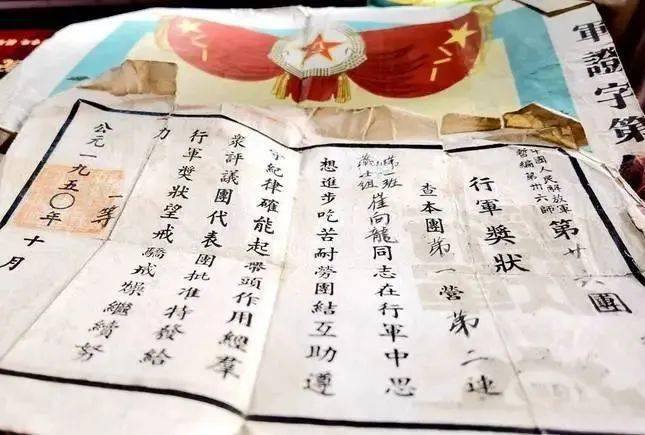 軍證字第
中國人民解放軍
暫編第卅六師
第廿六團
行軍獎狀
查本團第一營第二連
崔向龍同志在行軍中思
想進步吃苦耐勞團結互助遵
守紀律確能起帶頭作用經羣
衆評議團代表團批准特發給
行軍獎狀望戒驕戒燥繼續努
力
一等
公元一九五〇年十月